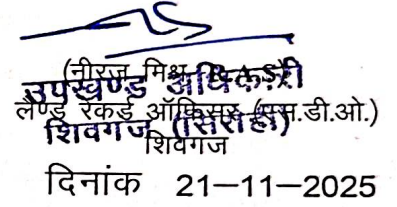 (नीरज मिश्र R.A.S.)
उपखण्ड अधिकारी
लैण्ड रेकर्ड ऑफिसर (एस.डी.ओ.)
शिवगंज (सिरोही)
शिवगंज
दिनांक 21-11-2025